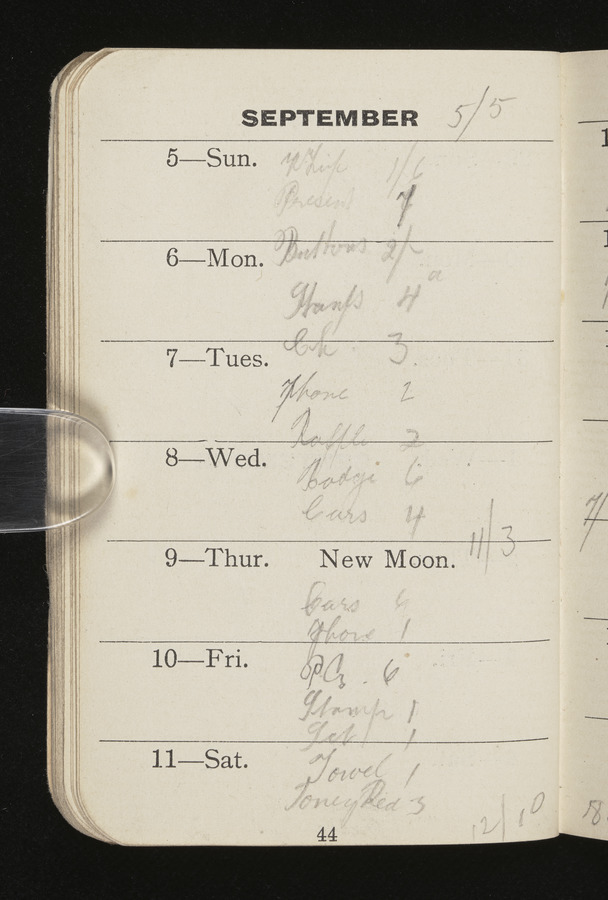 SEPTEMBER 5/5
5—Sun. Whip 1/6
Present 7
6—Mon. Buttons 2/-
Stamps 4
7—Tues. Ch 3
Phone 2
Raffle 2
8—Wed.
6
Cars 4
11/3
9—Thur. New Moon.
Cars 6
Phone 1
10—Fri. PC 6
Stamp 1
1
11—Sat. Towel 1
3
12/10
44